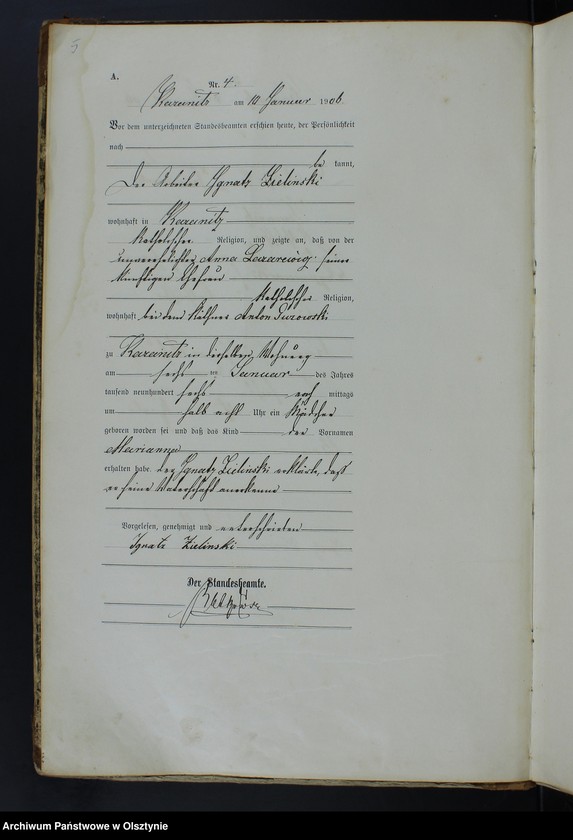 5
A.
Nr. 4.
Kazanitz am 10 Januar 1906.
Vor dem unterzeichneten Standesbeamten erschien heute, der Persönlichkeit
nach
be kannt,
Der Arbeiter Ignatz Zielinski
wohnhaft in Kazanitz
katholischer Religion, und zeigte an, daß von der
unverehelichten Anna seiner
künftigen Ehefrau
katholischer Religion,
wohnhaft bei dem Käthner Anton Gurowski
zu Kazanitz in derselben Wohnung
am sechs ten Januar des Jahres
tausend neunhundert sechs nach mittags
um halb acht Uhr ein Mädchen
geboren worden sei und daß das Kind den Vornamen
Marianna
erhalten habe. Der Ignatz Zielinski erklärte, daß
er seine Vaterschaft anerkenne
Vorgelesen, genehmigt und unterschrieben
Ignatz Zielinski
Der Standesbeamte.
Archiwum Państwowe w Olsztynie